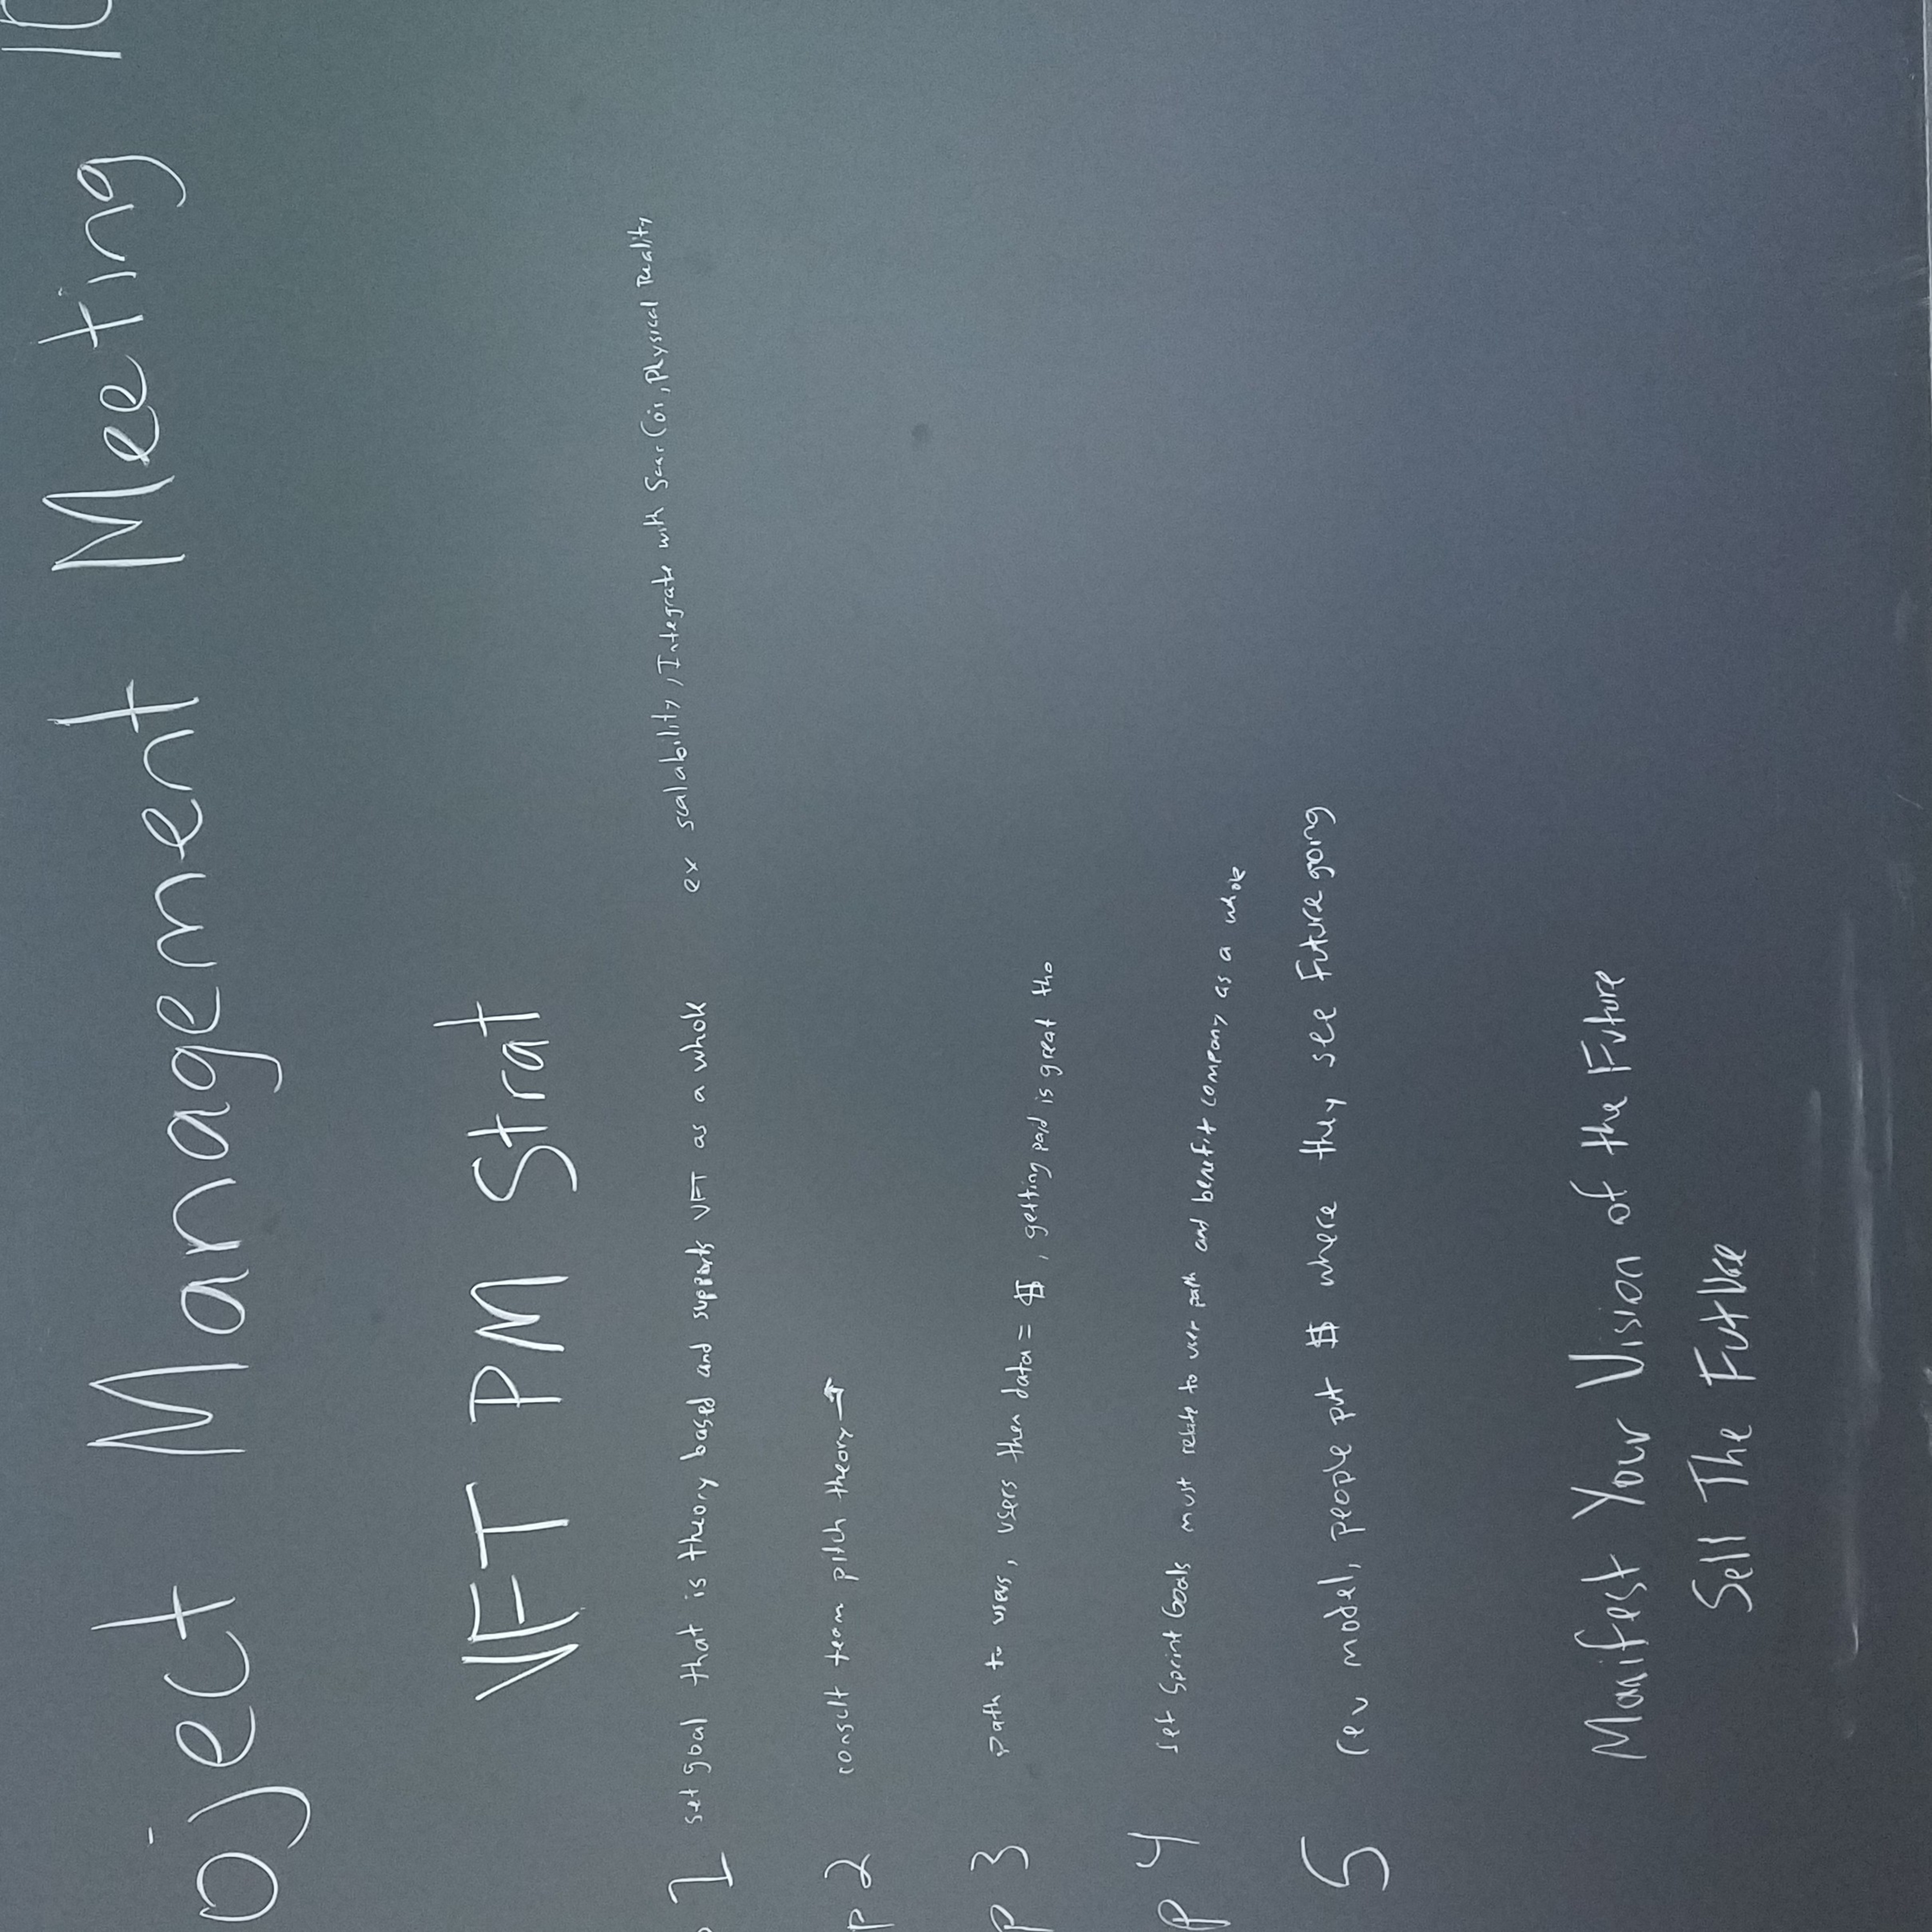 oject Management Meeting
VFT PM Strat
1 set goal that is theory based and supports VFT as a whole ex scalability, Integrate with Scar Cois, Physical Reality
p 2 consult team pitch theory →
p 3 path to users, users then data = $, getting paid is great tho
p 4 set Sprint Goals must relate to user path and benefit company as a whole
5 rev model, people put $ where they see Future going
Manifest Your Vision of the Future
Sell The Future